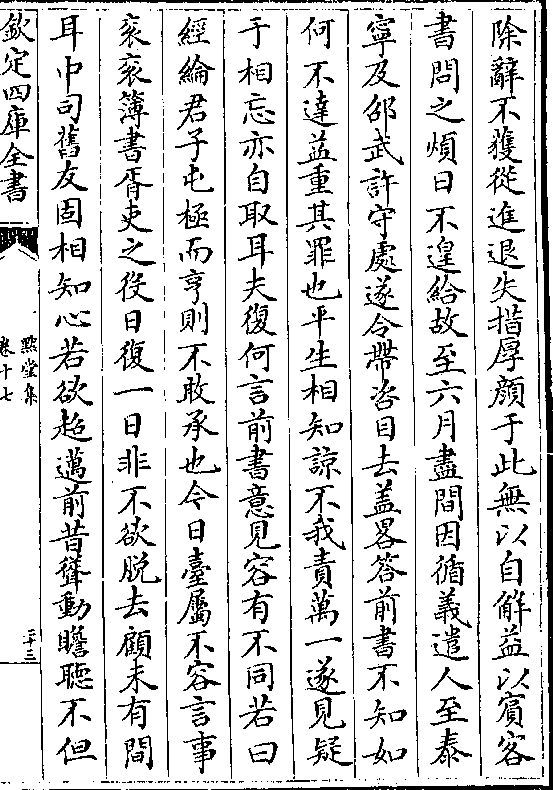 除辭不獲從進退失措厚顔于此無以自解益以賔客
書問之煩日不遑給故至六月盡間因循義遣人至泰
寧及邵武許守處遂令帶咨目去葢畧答前書不知如
何不達益重其罪也平生相知諒不我責萬一遂見疑
于相忘亦自取耳夫復何言前書意見容有不同若曰
經綸君子屯極而亨則不敢承也今日臺屬不容言事
衮衮簿書胥吏之役日復一日非不欲脱去顧未有間
耳中司舊友固相知心若欲超邁前昔聳動瞻聽不但
欽定四庫全書
默堂集
卷十七
二十三